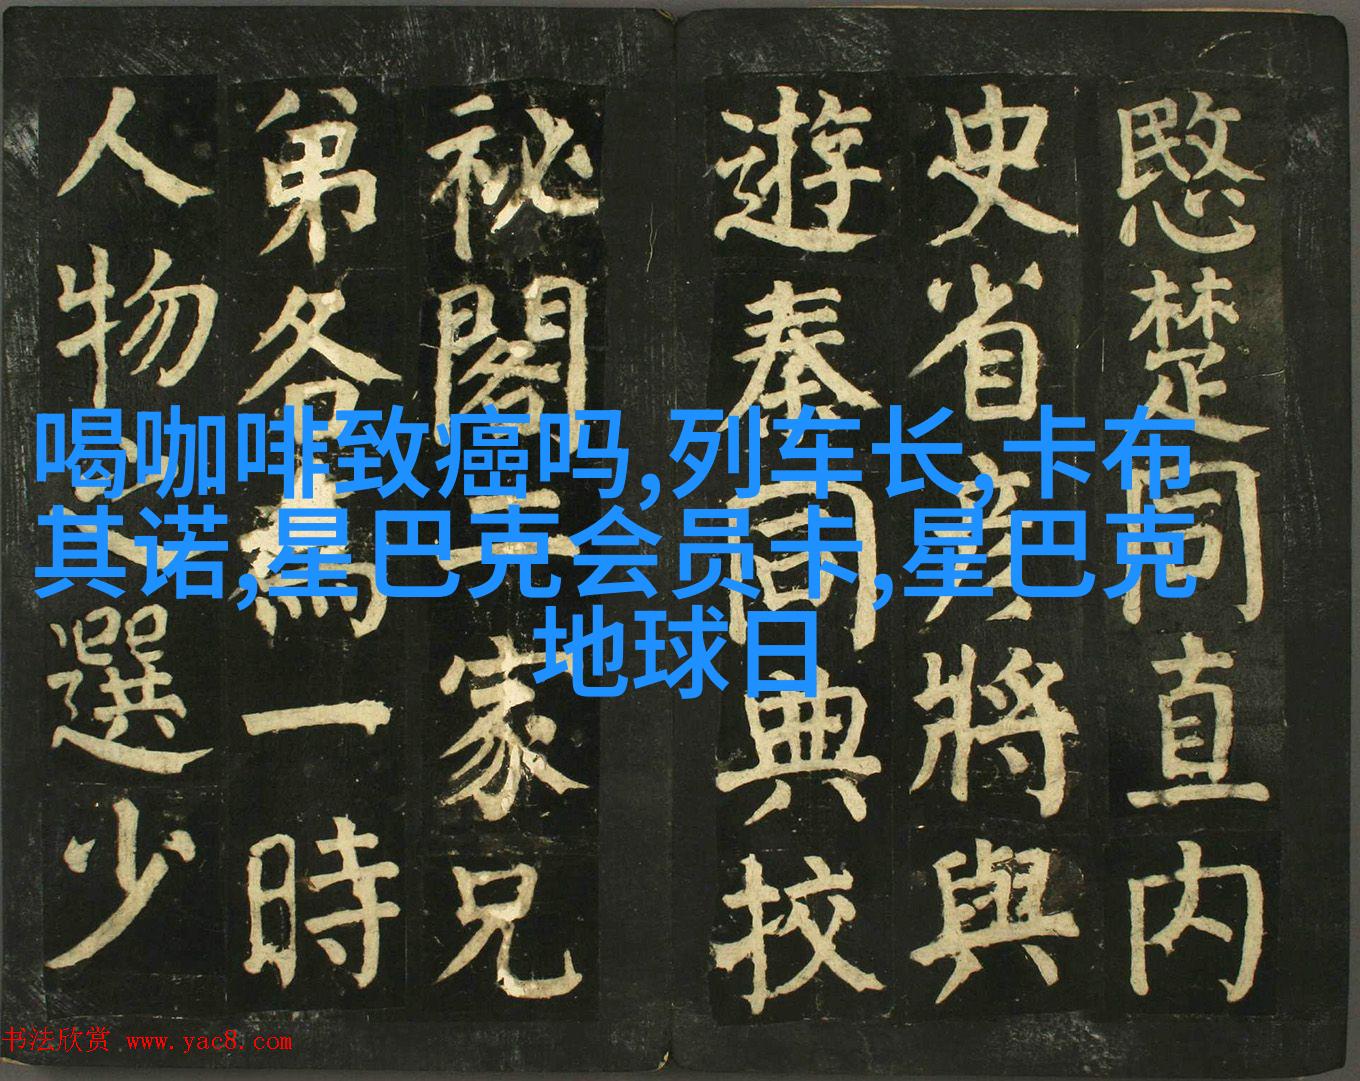 愍楚同直内
史省彦將與
遊秦同典校
祕閣二家兄
弟各為一時
人物之選少
喝咖啡致癌吗,列车长,卡布
其诺,星巴克会员卡,星巴克
地球日
书法欣赏 www.yac8.com